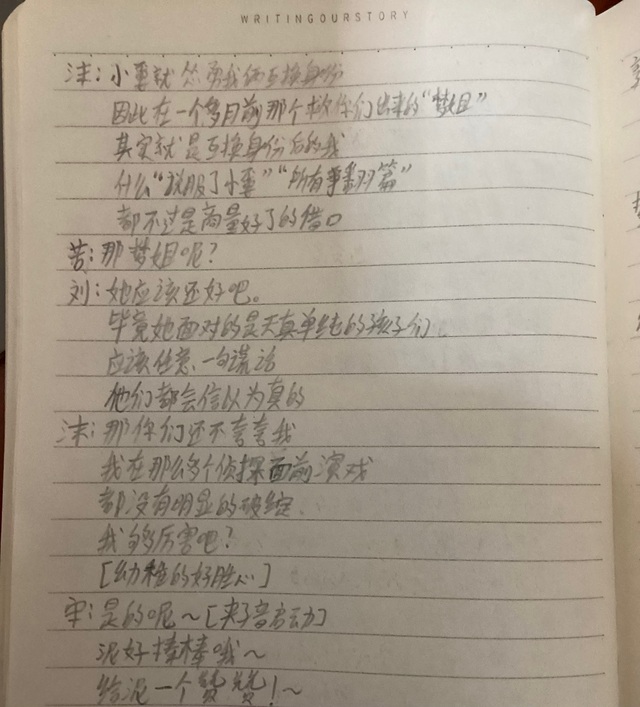 WRITINGOURSTORY
沫：小重就怂恿我俩互换身份
因此在一个多月前那个救你们出来的“梦姐”
其实就是互换身份后的我
什么“说服了小重”“所有事翻篇”
都不过是商量好了的借口
苦：那梦姐呢？
刘：她应该还好吧。
毕竟她面对的是天真单纯的孩子们
应该任意一句谎话
他们都会信以为真的
沫：那你们还不夸夸我
我在那么多个侦探面前演戏
都没有明显的破绽.
我够厉害吧？
[幼稚的好胜心]
宋：是的呢～[夹子音启动]
泥好棒棒哦～
给泥一个赞赞！～